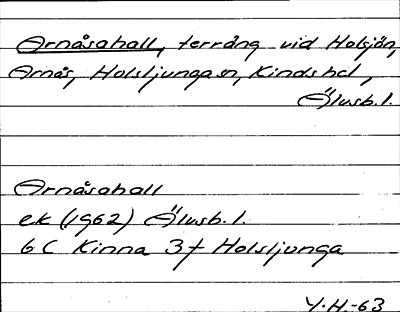 Arnåsahall, terräng vid Holsjön,
Arnås, Holsljunga sn, Kinds hd,
Älvsb. l.
Arnåsahall
ek (1962) Älvsb. l.
6 C Kinna 3f Holsljunga
Y.H.-63